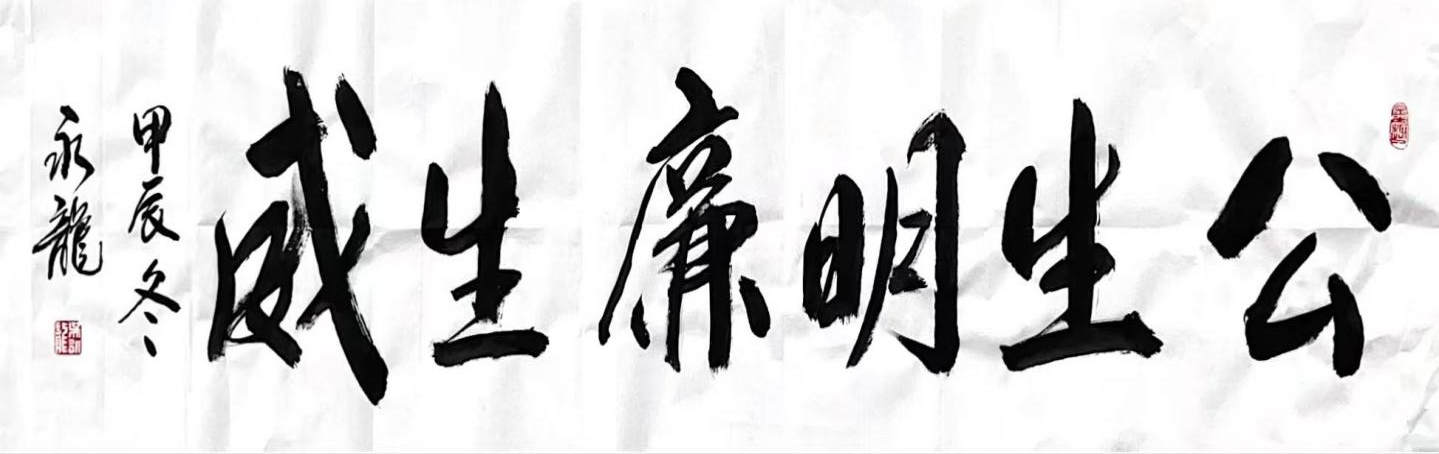 公生明廉生威
甲辰冬
永龍